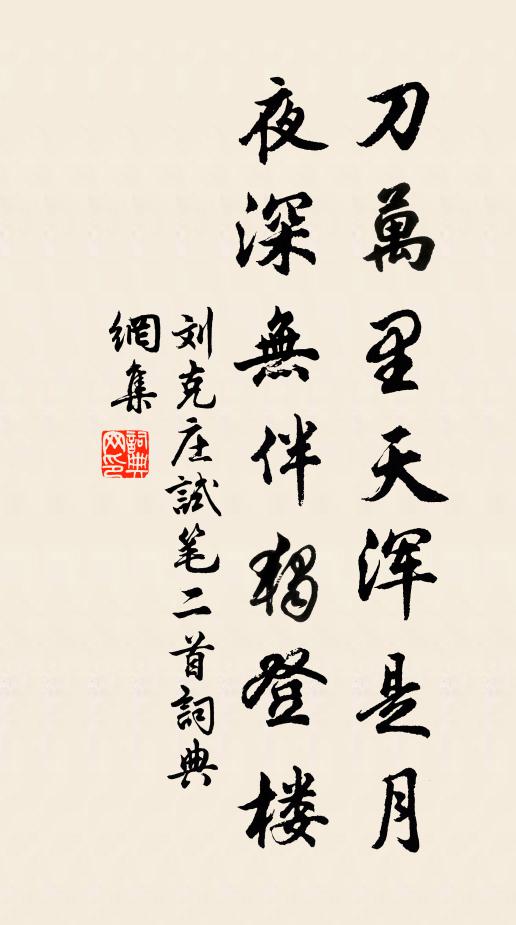 刀萬里天浑是月
夜深無伴獨登楼
刘克庄試笔二首詞典
網集
詞典
网印